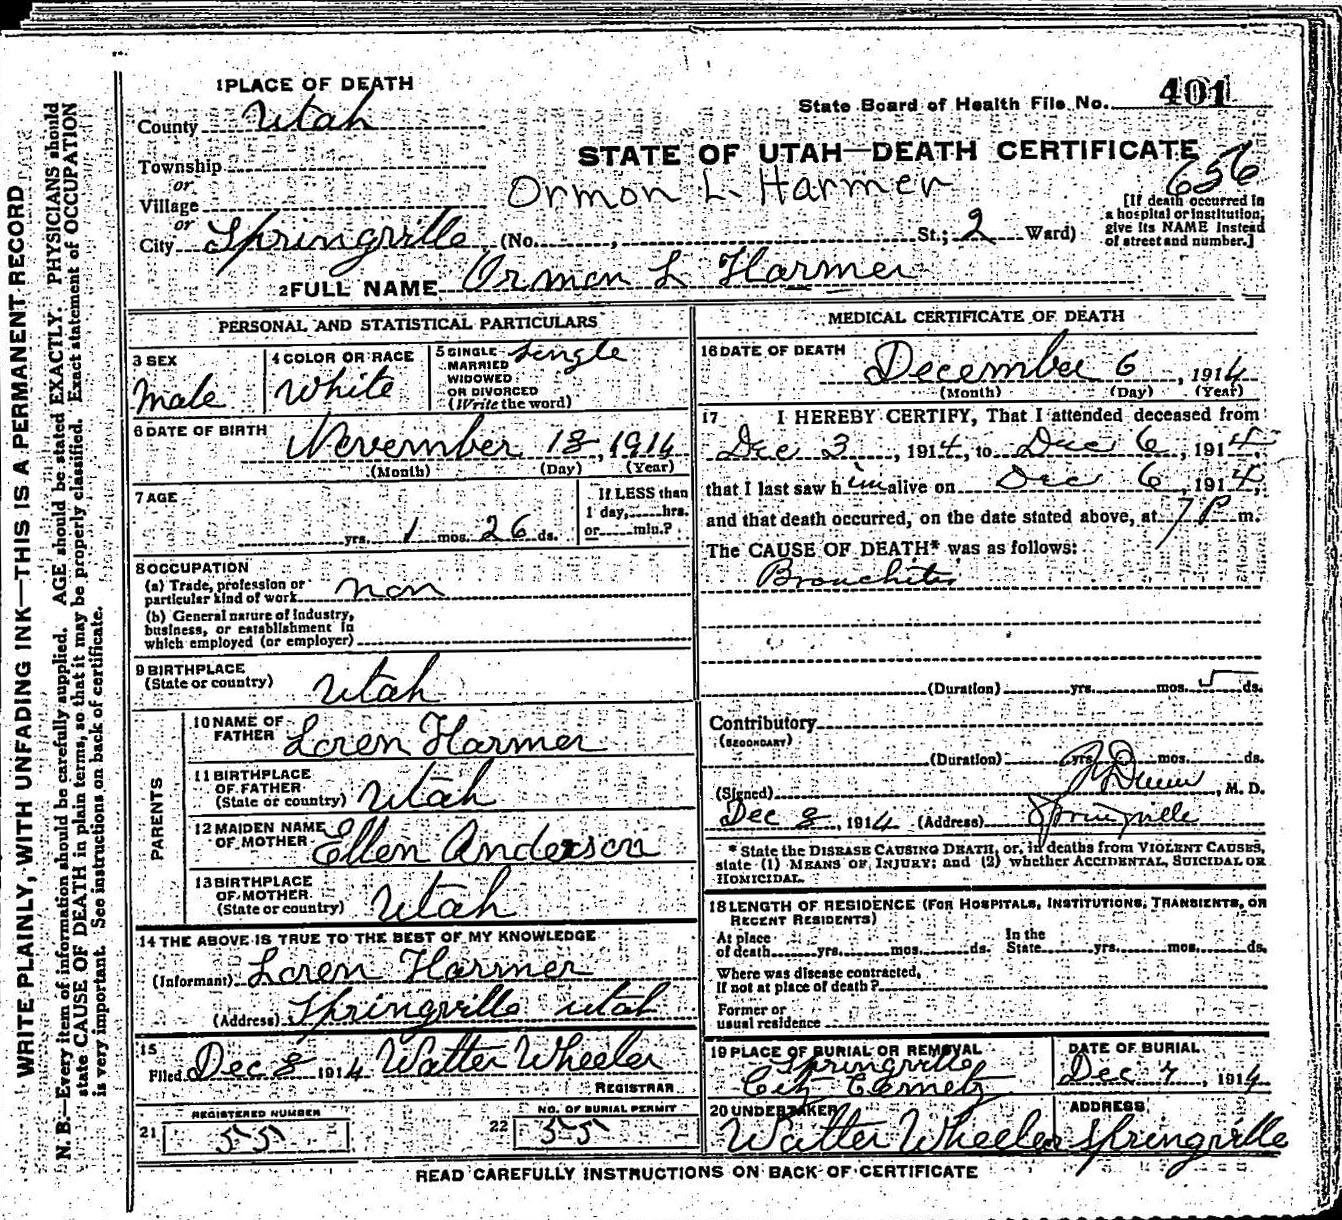 WRITE PLAINLY, WITH UNFADING INK—THIS IS A PERMANENT RECORD
N. B.—Every item of information should be carefully supplied. AGE should be stated EXACTLY. PHYSICIANS should
state CAUSE OF DEATH in plain terms, so that it may be properly classified. Exact statement of OCCUPATION
is very important. See instructions on back of certificate.
1 PLACE OF DEATH
State Board of Health File No. 401
County Utah
STATE OF UTAH—DEATH CERTIFICATE
656
Township
or
Village
Ormon L. Harmer
[If death occurred in
a hospital or institution,
give its NAME instead
of street and number.]
or
City Springville (No. , St.; 2 Ward)
2 FULL NAME Ormon L Harmer
PERSONAL AND STATISTICAL PARTICULARS
3 SEX
Male
4 COLOR OR RACE
White
5 SINGLE
MARRIED
WIDOWED
OR DIVORCED
(Write the word)
Single
6 DATE OF BIRTH
November 18, 1914
(Month) (Day) (Year)
7 AGE
yrs. 1 mos. 26 ds.
If LESS than
1 day, hrs.
or min.?
8 OCCUPATION
(a) Trade, profession or
particular kind of work non
(b) General nature of industry,
business, or establishment in
which employed (or employer)
9 BIRTHPLACE
(State or country) Utah
PARENTS
10 NAME OF
FATHER Loren Harmer
11 BIRTHPLACE
OF FATHER
(State or country) Utah
12 MAIDEN NAME
OF MOTHER Ellen Anderson
13 BIRTHPLACE
OF MOTHER
(State or country) Utah
14 THE ABOVE IS TRUE TO THE BEST OF MY KNOWLEDGE
(Informant) Loren Harmer
(Address) Springville Utah
15
Filed Dec 8 1914 Walter Wheeler
REGISTRAR
21 REGISTERED NUMBER
55
22 NO. OF BURIAL PERMIT
55
MEDICAL CERTIFICATE OF DEATH
16 DATE OF DEATH
December 6, 1914
(Month) (Day) (Year)
17 I HEREBY CERTIFY, That I attended deceased from
Dec 3, 1914, to Dec 6, 1914,
that I last saw him alive on Dec 6, 1914,
and that death occurred, on the date stated above, at 7 P m.
The CAUSE OF DEATH* was as follows:
Bronchitis
(Duration) yrs. mos. 5 ds.
Contributory
(SECONDARY)
(Duration) yrs. mos. ds.
(Signed) Dunn, M. D.
Dec 8, 1914 (Address) Springville
* State the DISEASE CAUSING DEATH, or, in deaths from VIOLENT CAUSES,
state (1) MEANS OF INJURY; and (2) whether ACCIDENTAL, SUICIDAL OR
HOMICIDAL.
18 LENGTH OF RESIDENCE (FOR HOSPITALS, INSTITUTIONS, TRANSIENTS, OR
RECENT RESIDENTS)
At place
of death yrs. mos. ds.
In the
State yrs. mos. ds.
Where was disease contracted,
If not at place of death?
Former or
usual residence
19 PLACE OF BURIAL OR REMOVAL
Springville
City Cemety
DATE OF BURIAL
Dec 7, 1914
20 UNDERTAKER
Walter Wheeler
ADDRESS
Springville
READ CAREFULLY INSTRUCTIONS ON BACK OF CERTIFICATE